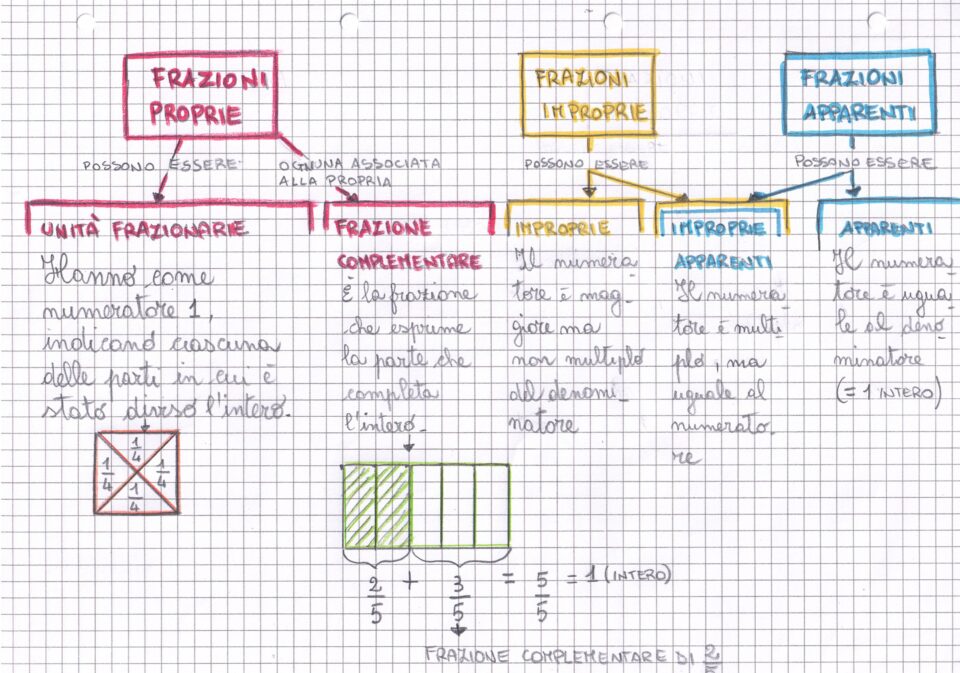 FRAZIONI
PROPRIE
FRAZIONI
IMPROPRIE
FRAZIONI
APPARENTI
POSSONO ESSERE
OGNUNA ASSOCIATA
ALLA PROPRIA
POSSONO ESSERE
POSSONO ESSERE
UNITÀ FRAZIONARIE
Hanno come
numeratore 1,
indicano ciascuna
delle parti in cui è
stato diviso l'intero.
1/4
1/4
1/4
1/4
FRAZIONE
COMPLEMENTARE
È la frazione
che esprime
la parte che
completa
l'intero.
2/5 + 3/5 = 5/5 = 1 (INTERO)
FRAZIONE COMPLEMENTARE DI 2/5
IMPROPRIE
Il numera
tore è mag_
giore ma
non multiplo
del denomi_
natore
IMPROPRIE
APPARENTI
Il numera_
tore è multi_
plo, ma
uguale al
numerato_
re
APPARENTI
Il numera_
tore è ugua_
le al deno_
minatore
(= 1 INTERO)